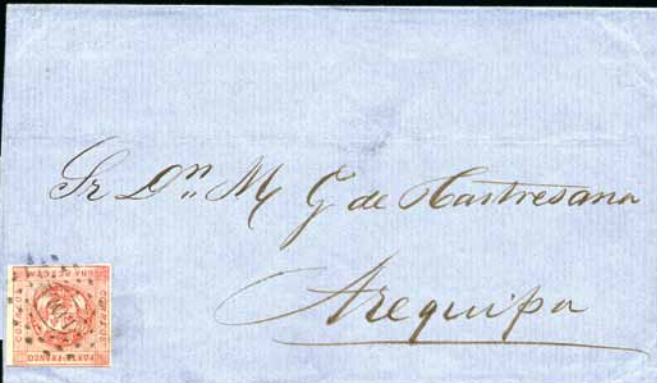 Sr Dn. M G de Castresana
Arequipa
PORTE FRANCO
CORREOS
CORREOS
UNA PESETA